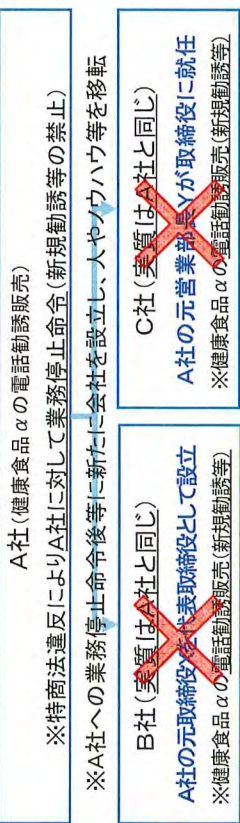 A社(健康食品αの電話勧誘販売)
※特商法違反によりA社に対して業務停止命令(新規勧誘等の禁止)
※A社への業務停止命令後等に新たに会社を設立し、人やノウハウ等を移転
B社(実質はA社と同じ)
A社の元取締役Xを代表取締役として設立
※健康食品αの電話勧誘販売(新規勧誘等)
C社(実質はA社と同じ)
A社の元営業部長Yが取締役に就任
※健康食品αの電話勧誘販売(新規勧誘等)